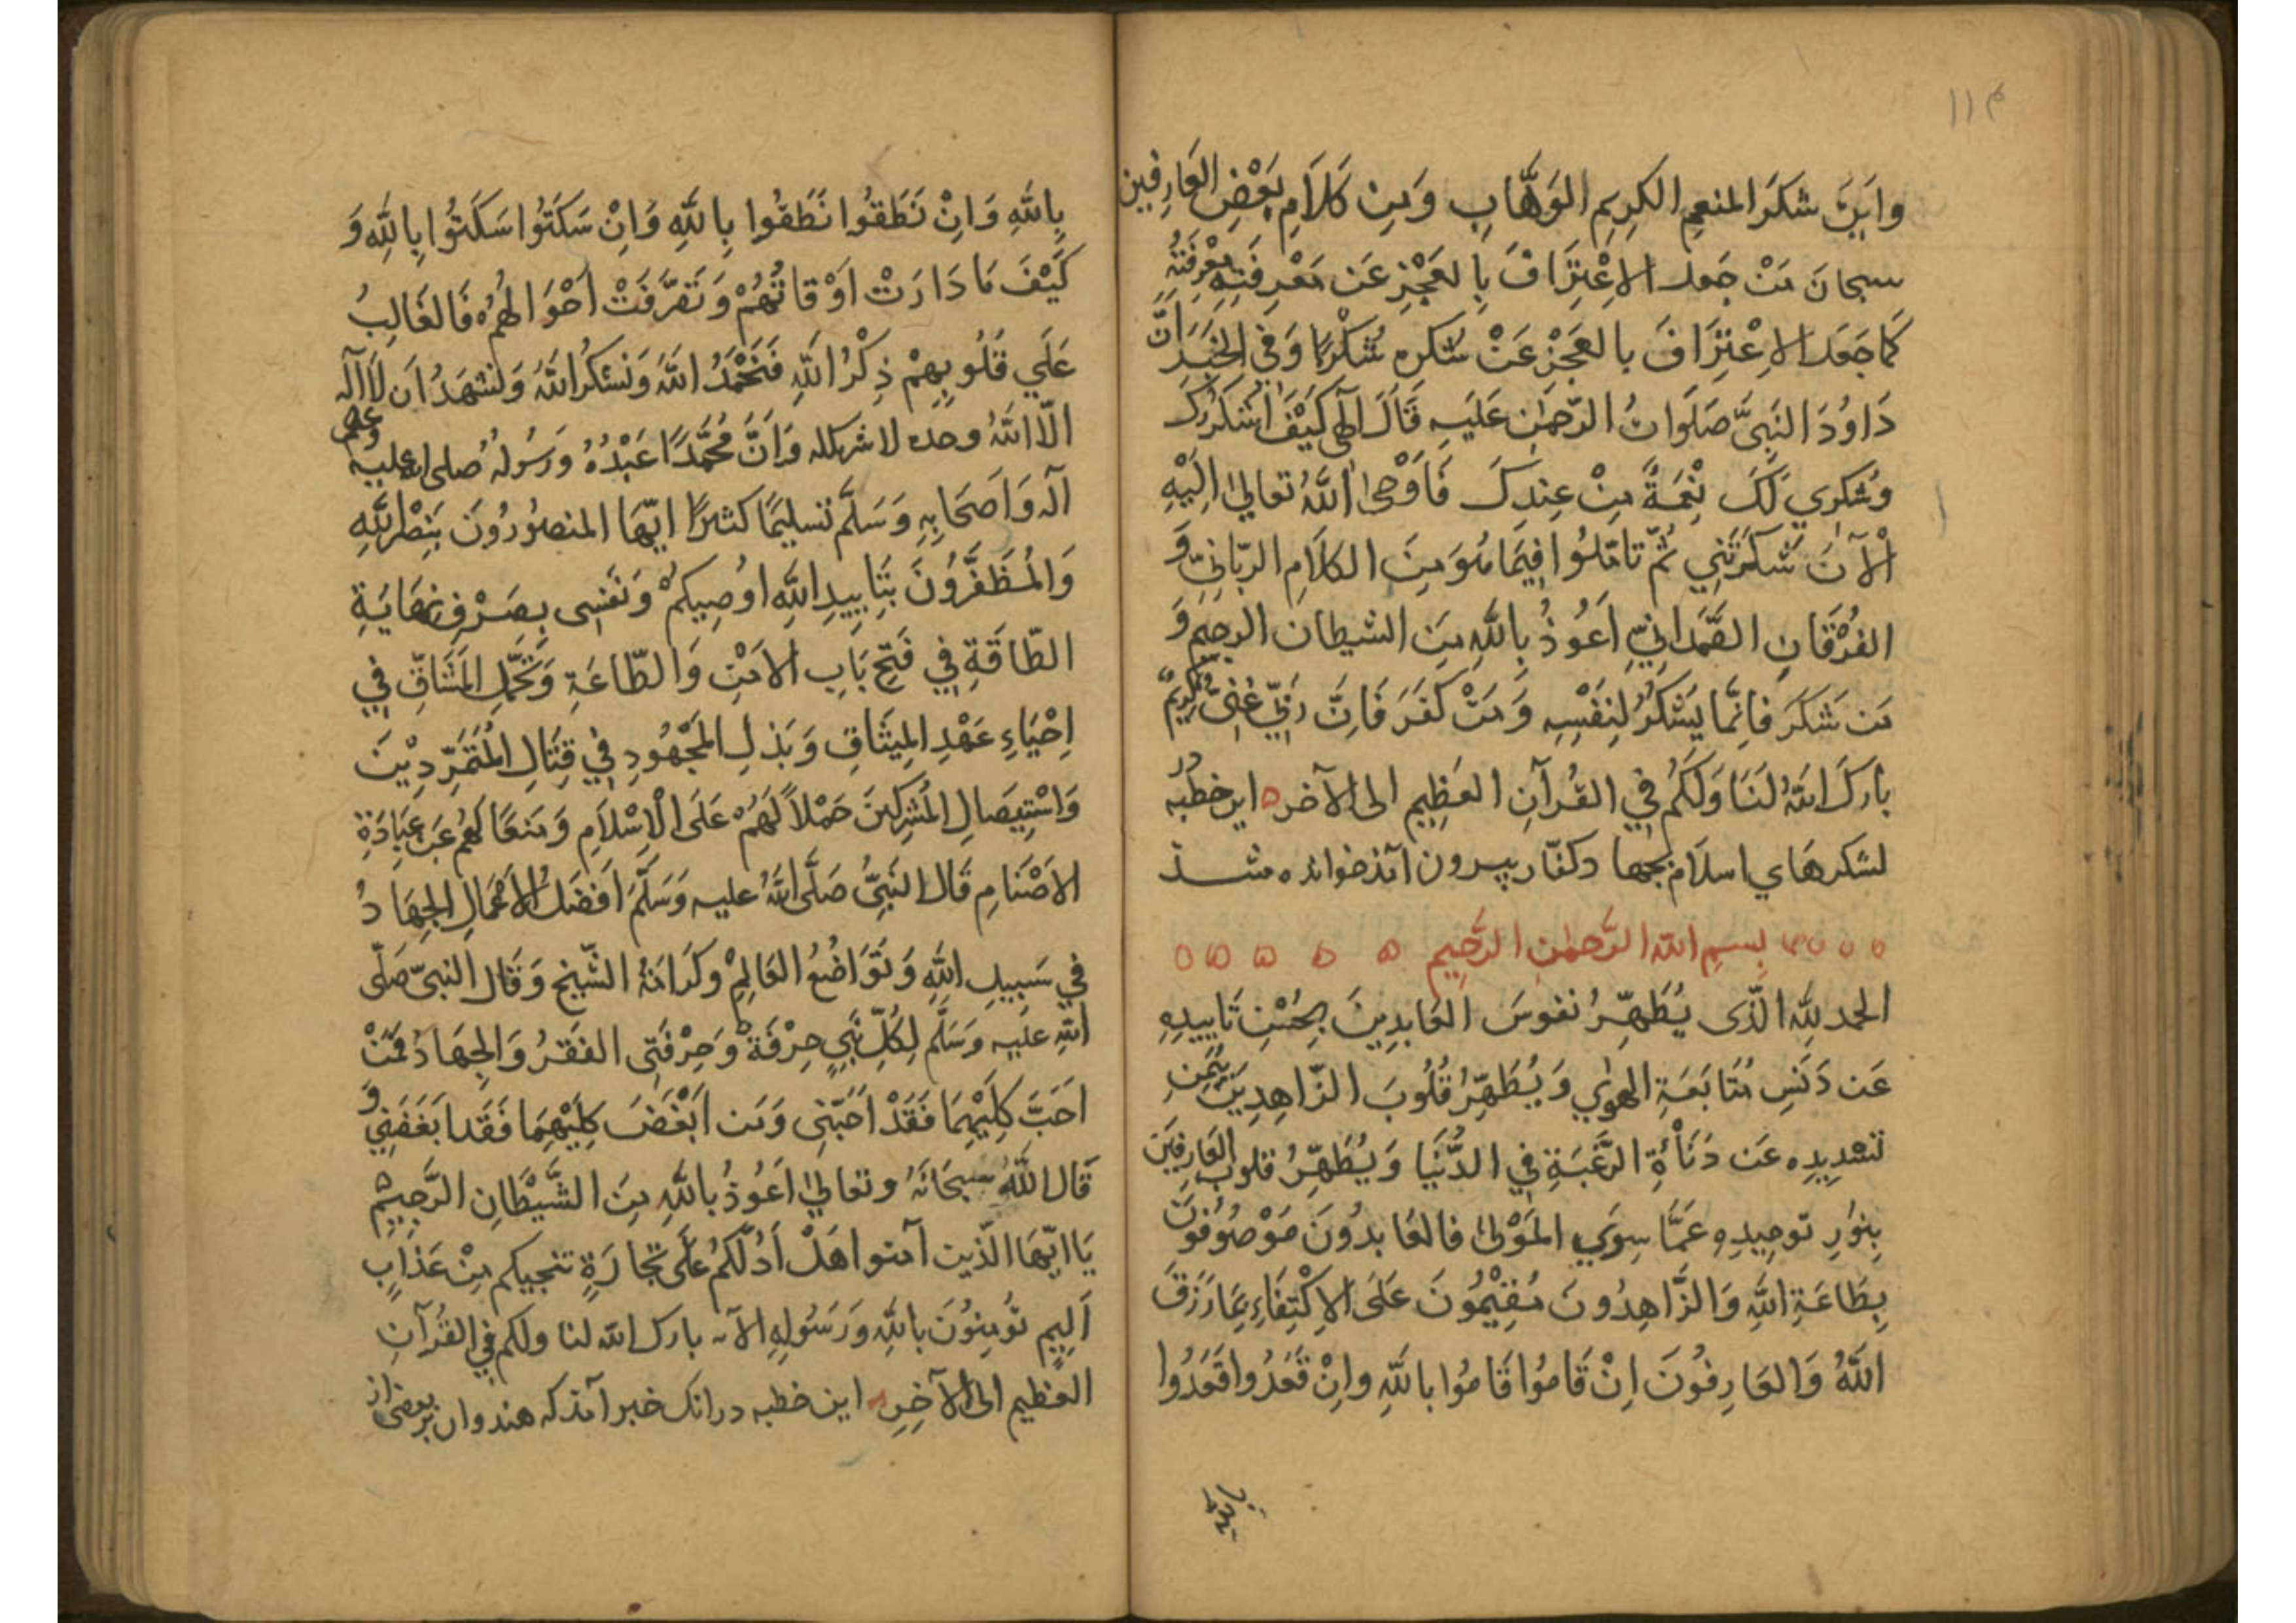 ۱۱۴
واين شكر المنعم الكريم الوهّاب ومن كلام بعض العارفين
سبحان من جعل الاعتراف بالعجز عن معرفته معرفته
كما جعل الاعتراف بالعجز عن شكره شكرًا وفي الخبر انّ
داوُد النبيّ صلوات الرّحمن عليه قال الهي كيف اشكرك
وشكري لك نعمة من عندك فاوحى الله تعالى اليه
الآن شكرتني ثمّ تامّلوا فيما هو من الكلام الربّانيّ و
الفرقان الصّمدانيّ اعوذ بالله من الشيطان الرجيم و
من شكر فانّما يشكر لنفسه ومن كفر فانّ ربّي غنيّ كريم
بارك الله لنا ولكم في القرآن العظيم الى الآخر اين خطبه در
لشكرهاي اسلام بجهاد كفّار بيرون آمد خوانده شد
بسم الله الرّحمن الرّحيم
الحمد لله الّذى يُطهّر نفوس العابدين بحسن تاييده
عن دنس متابعة الهوى ويُطهّر قلوب الزّاهدين بيمن
تسديده عن دنأة الرّغبة في الدُّنيا ويُطهّر قلوب العارفين
بنور توحيده عمّا سوى المولى فالعابدون موصوفون
بطاعة الله والزّاهدون مقيمون على الاكتفاء بما رزق
الله والعارفون ان قاموا قاموا بالله وان قعدوا قعدوا
بالله وان نطقوا نطقوا بالله وان سكتوا سكتوا بالله و
كيف ما دارت اوقاتهم وتصرّفت احوالهم فالغالب
على قلوبهم ذكر الله فنحمد الله ونشكر الله ونشهد ان لا آله
الّا الله وحده لا شريكله وانّ محمّدًا عبده ورسوله صلى الله عليه وعلى
آله واصحابه وسلّم تسليمًا كثيرًا ايّها المنصورون بنصر الله
والمظفّرون بتاييد الله اوصيكم ونفسى بصرف نهاية
الطّاقة في فتح باب الامن والطّاعة وتحمّل المشاقّ في
احياء عهد الميثاق وبذل المجهود في قتال المتمرّدين
واستيصال المشركين حملًا لهم على الاسلام ومنعًا لهم عن عبادة
الاصنام قال النبيّ صلّى الله عليه وسلّم افضل الاعمال الجهاد
في سبيل الله وتواضع العالم وكرامة الشّيخ وقال النبيّ صلّى
الله عليه وسلّم لكلّ نبي حرفة وحرفتى الفقر والجهاد فمن
احبّ كليهما فقد احبّنى ومن ابغض كليهما فقد ابغضني و
قال الله سبحانه وتعالى اعوذ بالله من الشّيطان الرّجيم
يا ايّها الّذين آمنوا هل ادلّكم على تجارة تنجيكم من عذاب
اليم تومنون بالله ورسوله الآيه بارك الله لنا ولكم في القرآن
العظيم الى الآخر اين خطبه در انك خبر آمد كه هندوان بر بعضى از